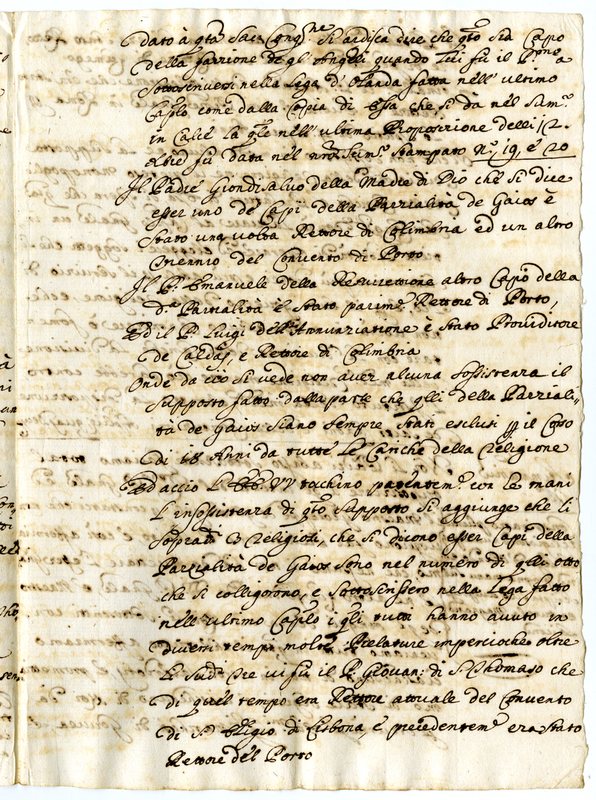 dato à q̃ta Sac: Congne. Si ardisca dire che q̃to sia Capo
della fazione de gl'Angeli quando Lui fù il Pmo. a
Sottoscriversi nella Lega d'Olanda fatta nell'ultimo
Caplo come dalla Copia di Essa che si dà nel Som.o
in Calce la q̃le nell'ultima Proposizione delli 12.
fù data nel nro Som.o Stampato N.o 19, e 20
Il Padre Giondisaluo della Madre di Dio che si dice
esser uno de Capi della Parzialità de Gaios è
Stato una volta Rettore di Colimbria ed un altro
triennio del Convento di Porto
Il P. Emanuele della Resurettione altro Capo della
d.a Partialità è Stato parim.e Rettore di Porto,
Ed il P. Luigi dell'Annunziatione è Stato Provditore
de Caldas, e Rettore di Colimbria
Onde da ciò si vede non aver alcuna Sossistenza il
Supposto fatto dalla parte che q̃lli della Parziali-
tà de Gaios siano sempre Stati esclusi p il Corso
di 18 Anni da tutte le Cariche della Religione
Ed acciò l'EE. VV tochino patentem.e con le mani
l'insossistenza di q̃to Supposto si aggiunge che li
Sopradi 3 Religiosi, che si dicono esser Capi della
Parzialità de Gaios sono nel numero di q̃lli otto
che si colligorono, e Sottoscrissero nella Lega fatta
nell'ultimo Caplo i q̃li tutti hanno avuto in
diversi tempi molte Prelature impercioche oltre
li Sudi tre vi fù il P. Giovani di S. Thomaso che
di quel tempo era Rettore attuale del Convento
di Sto Eligio di Lisbona e precedentem.e era stato
Rettore del Porto